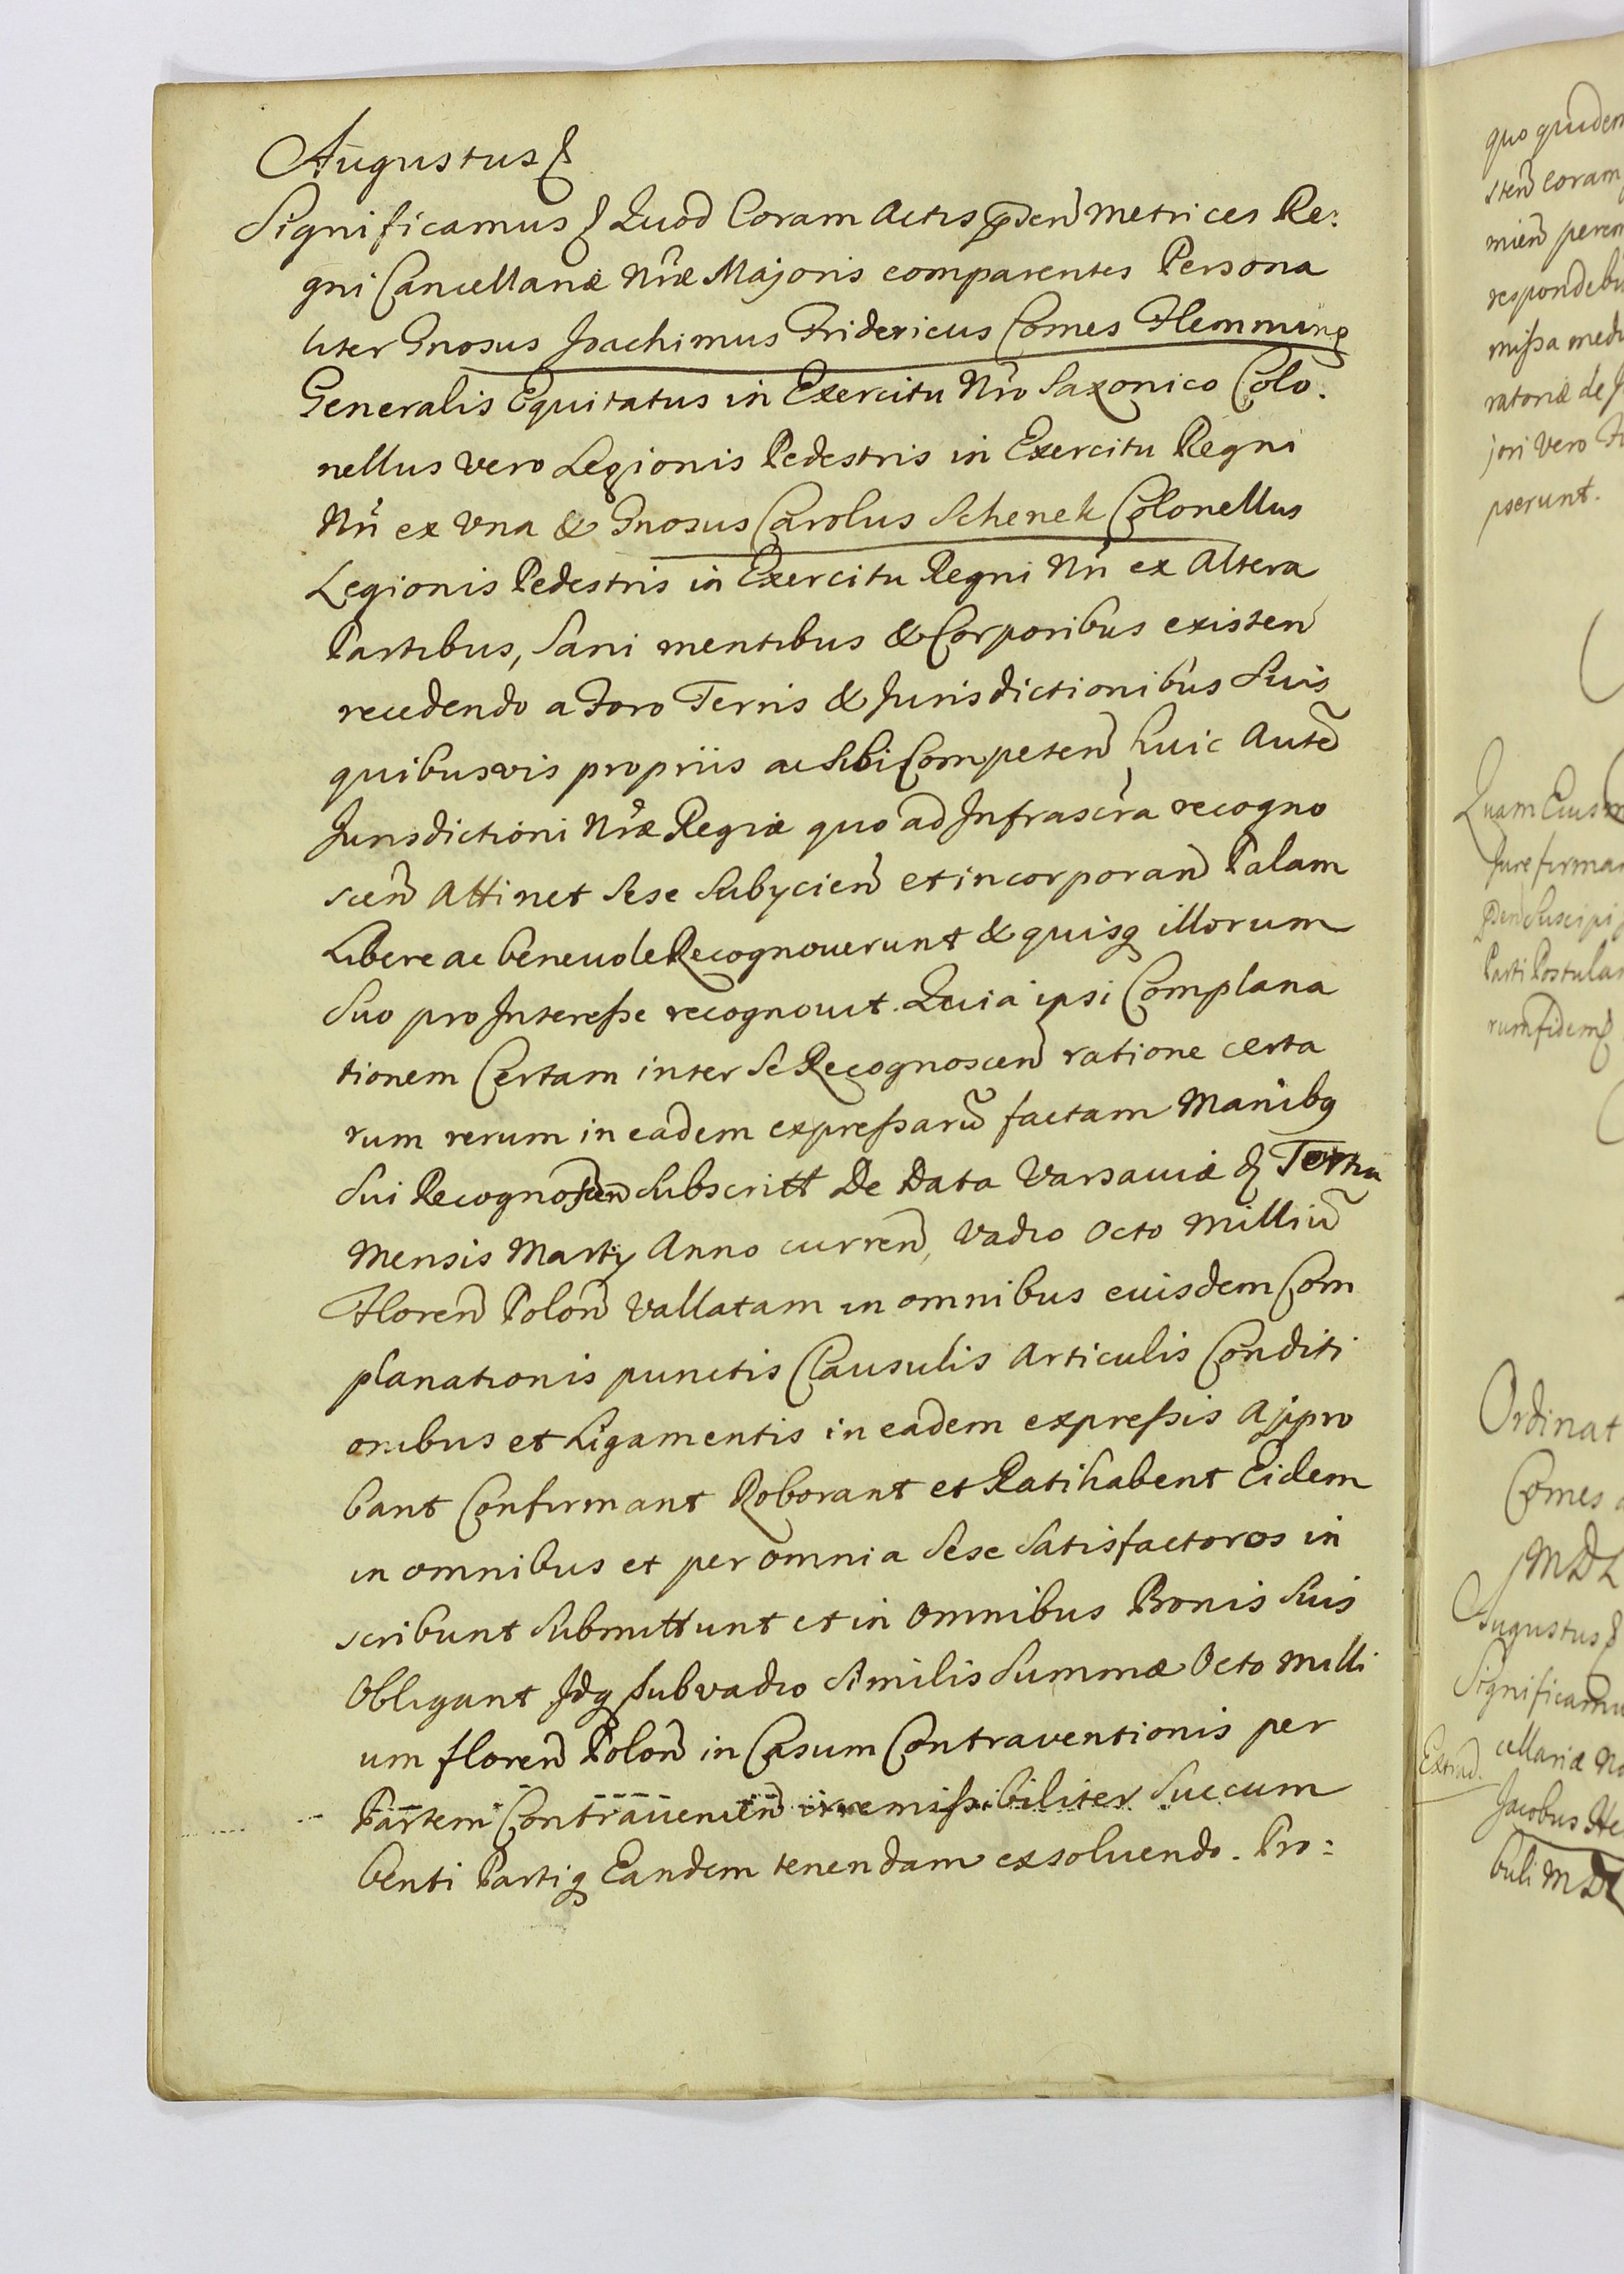 Augustus &
Significamus & Quod Coram Actis p̃sen̄ Metrices Re:
gni Cancellariæ Nr̃æ Majoris comparentes Persona
liter Gnosus Joachimus Fridericus Comes Flemming
Generalis Equitatus in Exercitu Nr̃o Saxonico Colo.
nellus vero Legionis Pedestris in Exercitu Regni
Nr̃i ex Vna & Gnosus Carolus Schenek Colonellus
Legionis Pedestris in Exercitu Regni Nr̃i ex Altera
Partibus, Sani mentibus & Corporibus existen̄
recedendo a Foro Terris & Jurisdictionibus Suis
quibusvis propriis ac Sibi Competen̄ huic Autē
Jurisdictioni Nr̃æ Regiæ quo ad Infrascr̃a recogno
scen̄ Attinet Sese Subÿcien̄ et incorporan̄ Palam
Libere ac beneuole Recognouerunt & quisq illorum
Suo pro Interesse recognouit. Quia ipsi Complana
tionem Certam inter Se Recognoscen̄ ratione certa
rum rerum in eadem expressarū factam Manibq
Sui Recognoscen̄ Subscritt De Data Varsauiæ & Tertia
Mensis Martÿ Anno curren̄, Vadio Octo Milliū
Floren̄ Polon̄ Vallatam in omnibus euisdem Com
planationis punctis Clausulis Articulis Conditi
onibus et Ligamentis in eadem expressis Appro
bant Confirmant Roborant et Ratihabent Eidem
in omnibus et per omnia Sese Satisfactoros in
scribunt Submittunt et in Omnibus Bonis Suis
Obligant Idq Sub vadio Similis Summæ Octo Milli
um floren̄ Polon̄ in Casum Contrauentionis per
Partem Contrauenien̄ irremissibiliter Succum
benti Partiq Eandem tenendam exsoluendo. Pro:
quo quidem
sten̄ Coram
mien̄ perem
respondebi
missa med
ratoriæ de
jori Vero
pserunt.
Quam Eius
Jure firma
p̃sen̄ Suscipi
Parti Postula
rum fidem &
Ordinat
Comes
MDL
Augustus &
Significamu
cellariæ No
Extrad.
Jacobus He
buli MDL